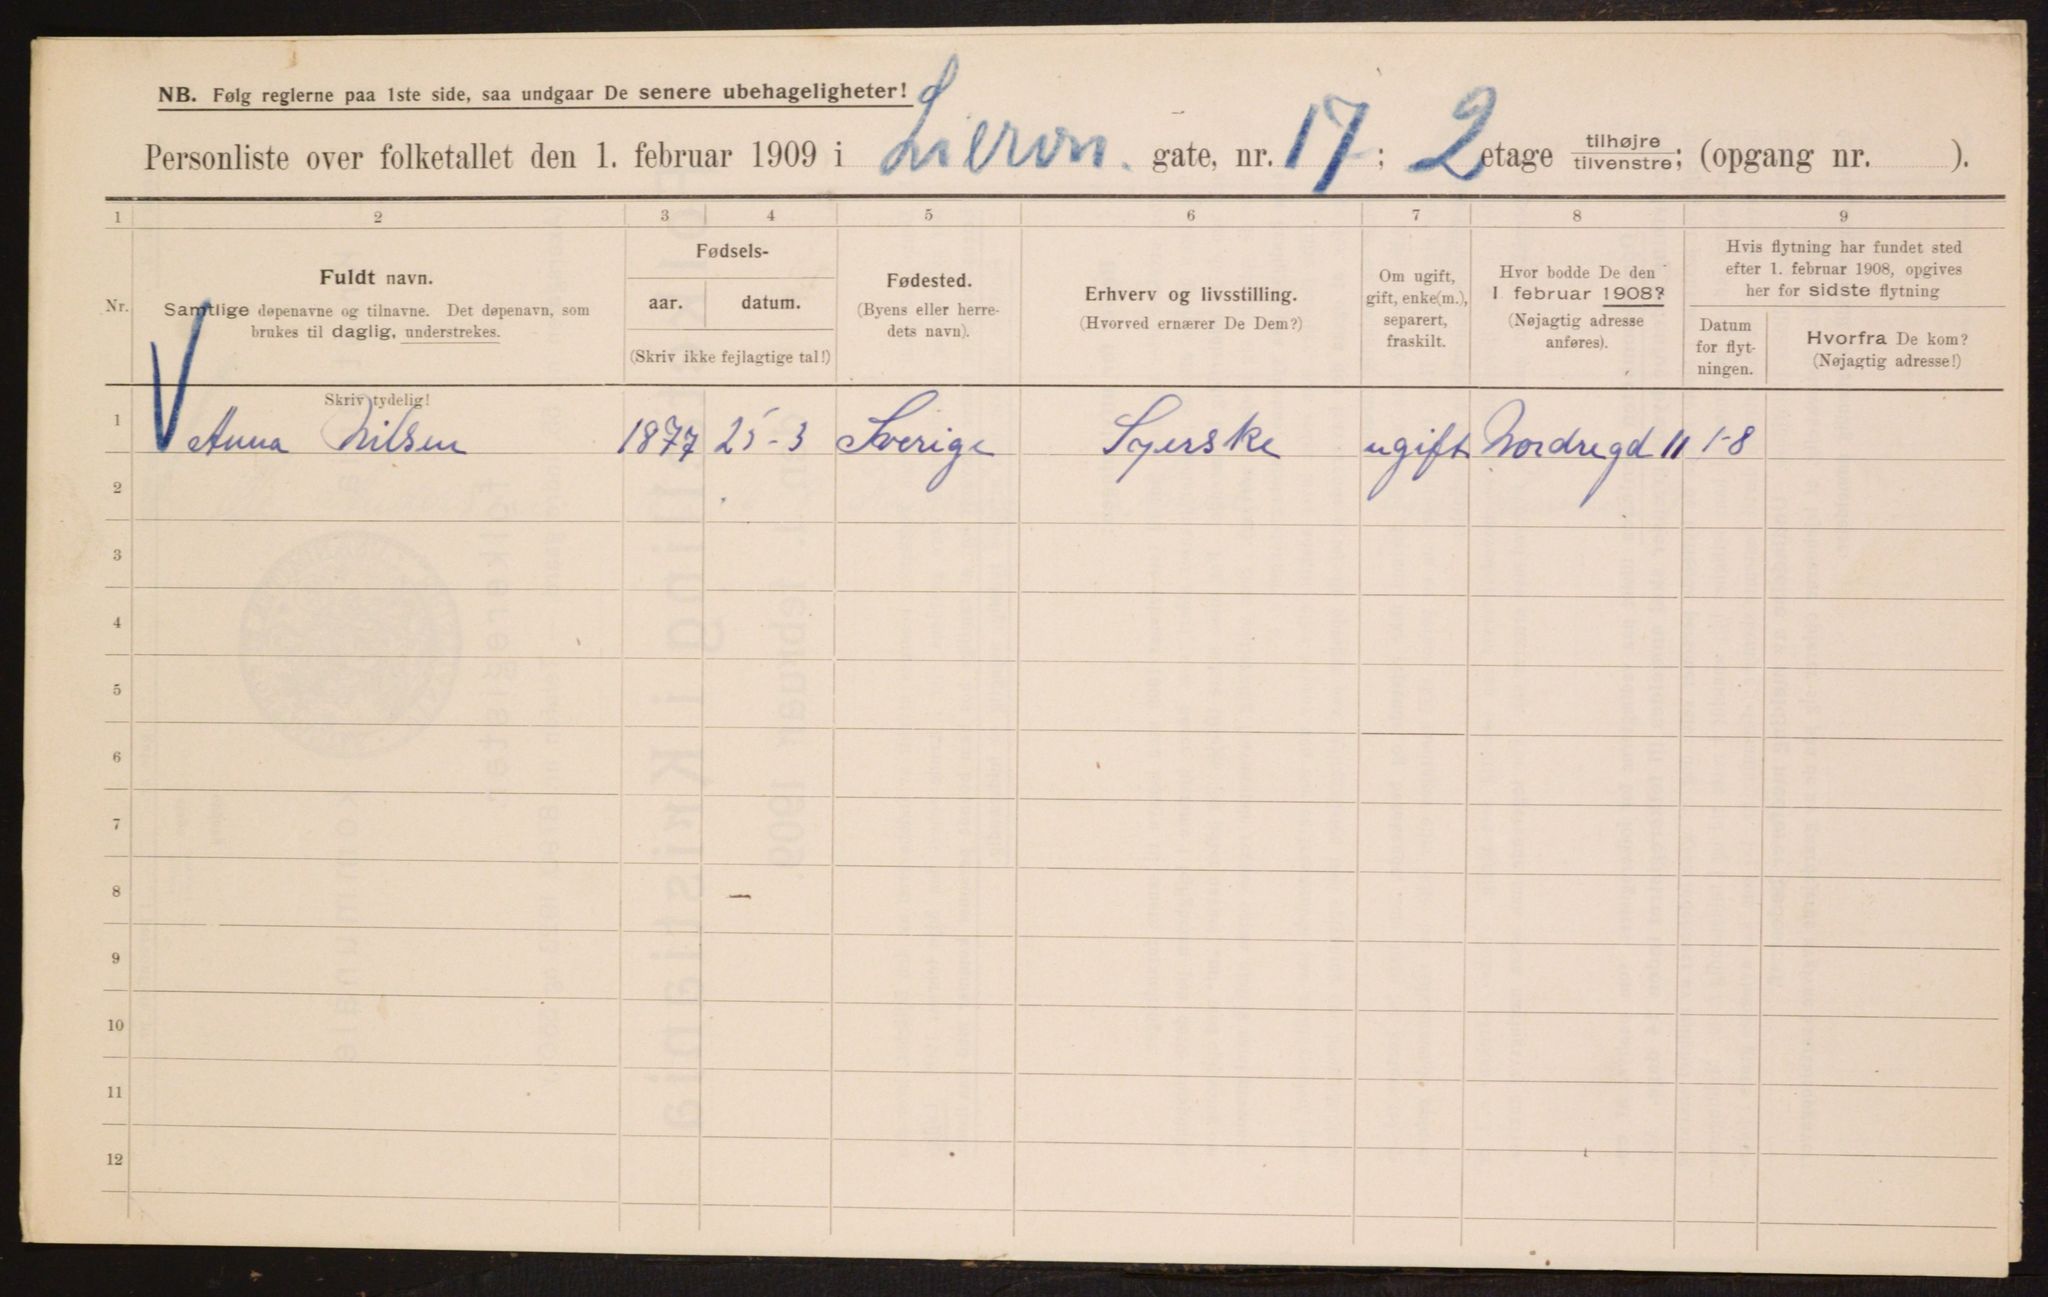 NB. Følg reglerne paa 1ste side, saa undgaar De senere ubehageligheter!
Personliste over folketallet den 1. februar 1909 i Liervn. gate, nr. 17; 2 etage tilhøjre tilvenstre; (opgang nr. ).
1 2 3 4 5 6 7 8 9
Nr.
Fuldt navn.
Samtlige døpenavne og tilnavne. Det døpenavn, som
brukes til daglig, understrekes.
Fødsels-
aar. datum.
(Skriv ikke fejlagtige tal!)
Fødested.
(Byens eller herre-
dets navn).
Erhverv og livsstilling.
(Hvorved ernærer De Dem?)
Om ugift,
gift, enke(m.),
separert,
fraskilt.
Hvor bodde De den
1 februar 1908?
(Nøjagtig adresse
anføres).
Hvis flytning har fundet sted
efter 1. februar 1908, opgives
her for sidste flytning
Datum
for flyt-
ningen.
Hvorfra De kom?
(Nøjagtig adresse!)
Skriv tydelig!
1 Anna Nilsen 1877 25-3 Sverige Syerske ugift Nordregd 11 1-8
2
3
4
5
6
7
8
9
10
11
12